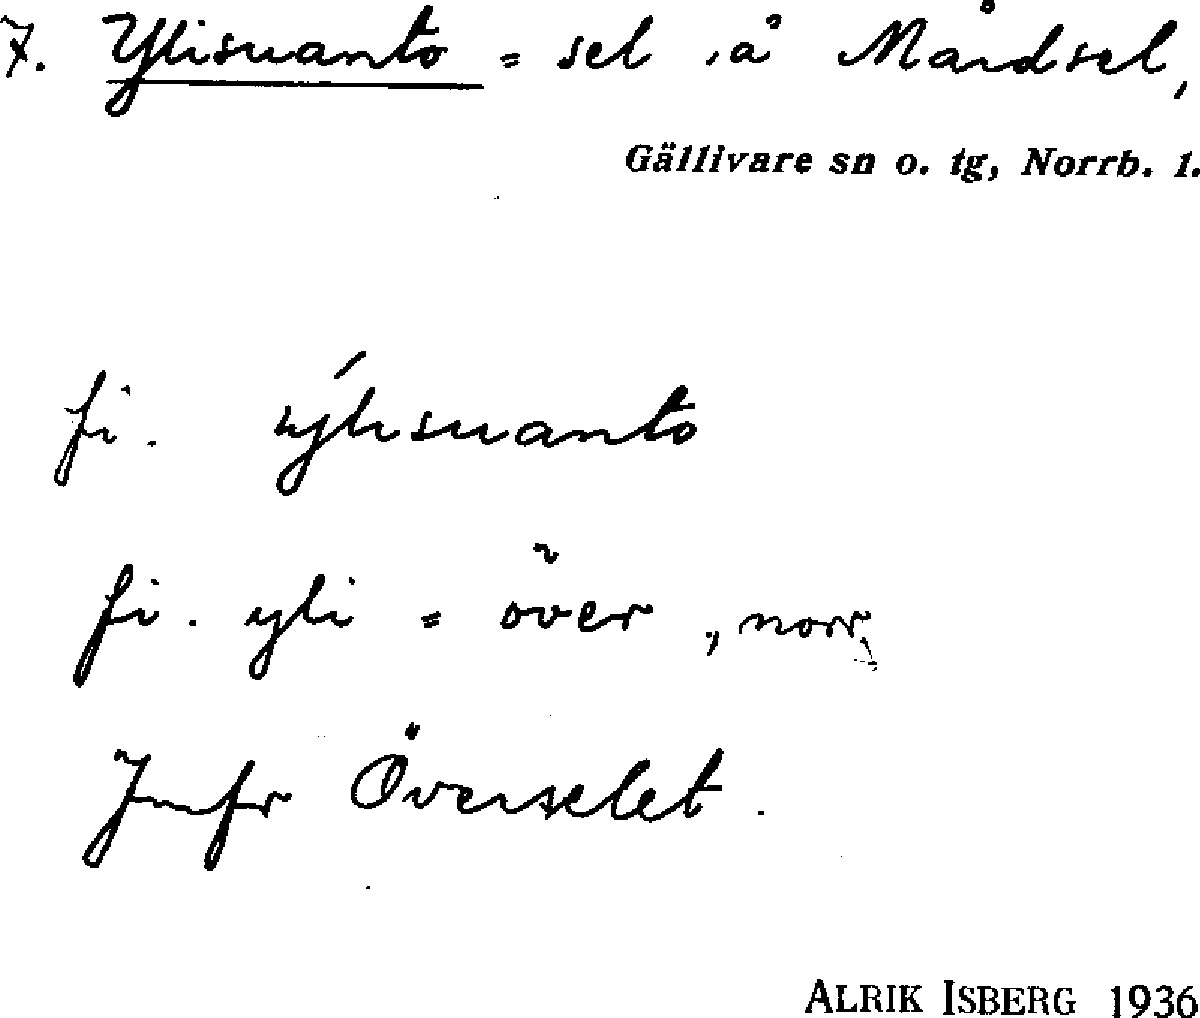 7. Ylisuanto = sel i å Mårdsel,
Gällivare sn o. tg, Norrb. l.
fi. ýlisuanto
fi. yli = över, norr,
Jmfr Överselet.
ALRIK ISBERG 1936